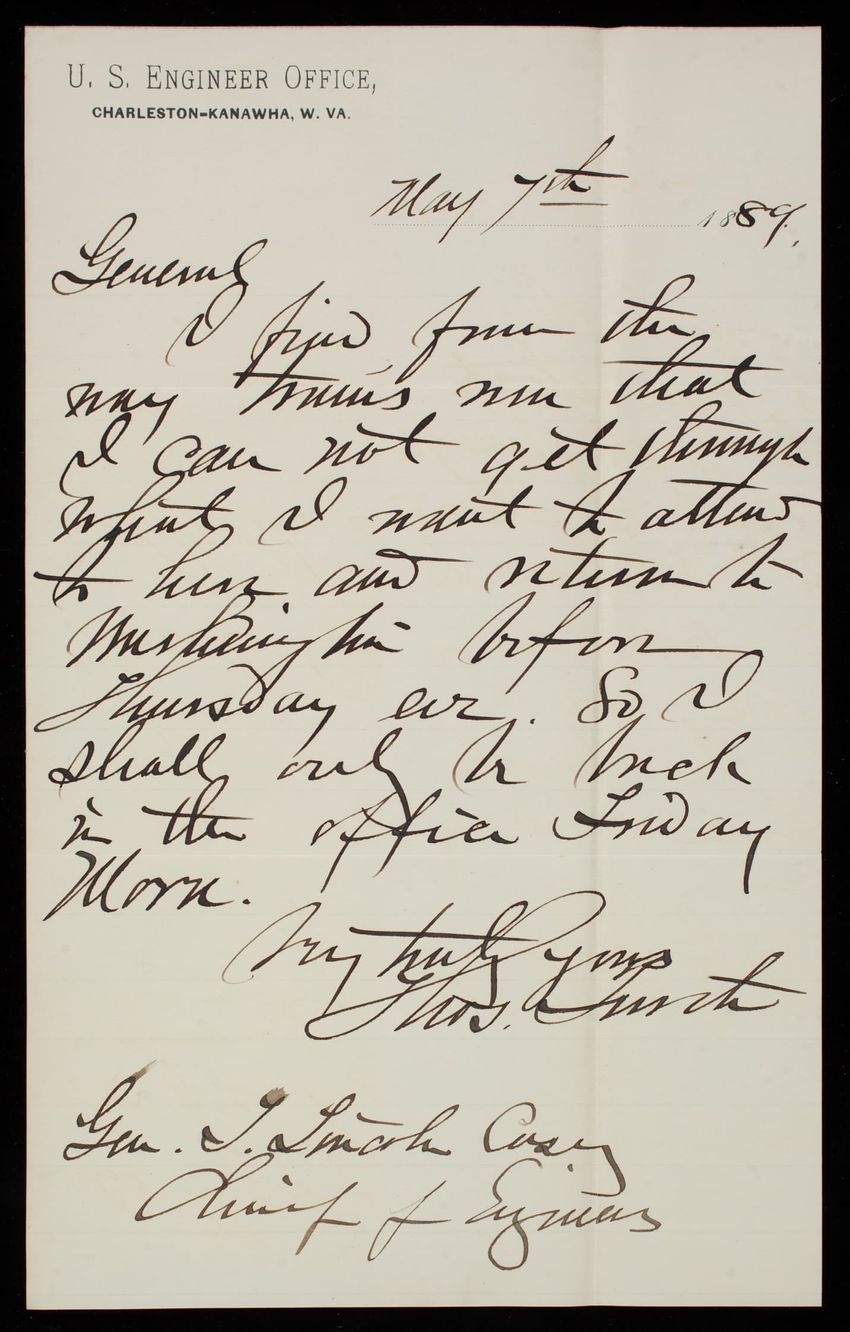 U. S. ENGINEER OFFICE,
CHARLESTON-KANAWHA, W. VA.
May 7th 1889.
General
I find from the
way trains run that
I can not get through
what I want to attend
to here and return to
Washington before
Thursday eve. So I
shall only be back
in the office Friday
Morn.
Very truly yours
Thos. Turtle
Gen. T. Lincoln Casey
Chief of Engineers